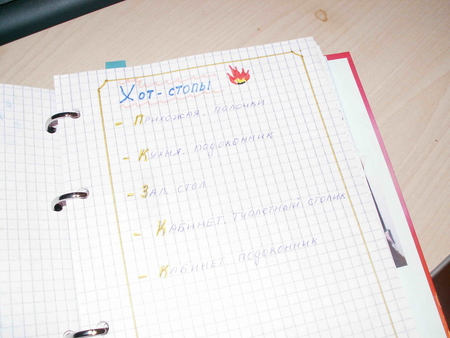 Хот-стопы
- Прихожая, полочки
- Кухня, подоконник
- Зал, стол
- Кабинет, туалетный столик
- Кабинет, подоконник